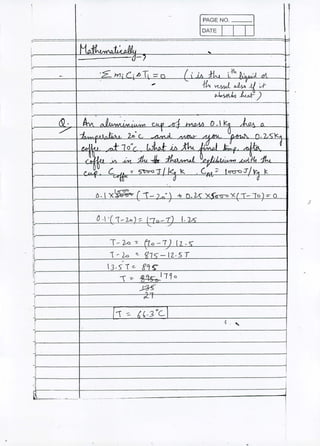 PAGE NO.
DATE
Mathematically →
Σ mᵢ Cᵢ ΔTᵢ = 0 (i is the iᵗʰ liquid or
the vessel also if it
absorbs heat)
Q:- An aluminium cup of mass 0.1 Kg has a
temperature 20°C and now you pour 0.25 Kg
coffee at 70°C. What is the final temp. after
coffee is in the thermal eqlibrium with the
cup. C coffee = 5000 J/kg K C Al = 1000 J/kg K
0.1 X 1000 (T-20) + 0.25 X 5000 X (T-70) = 0
0.1 (T-20) = (70-T) 1.25
T-20 = (70-T) 12.5
T-20 = 875 - 12.5 T
13.5 T = 895
T = 1790
27
T = 66.3°C